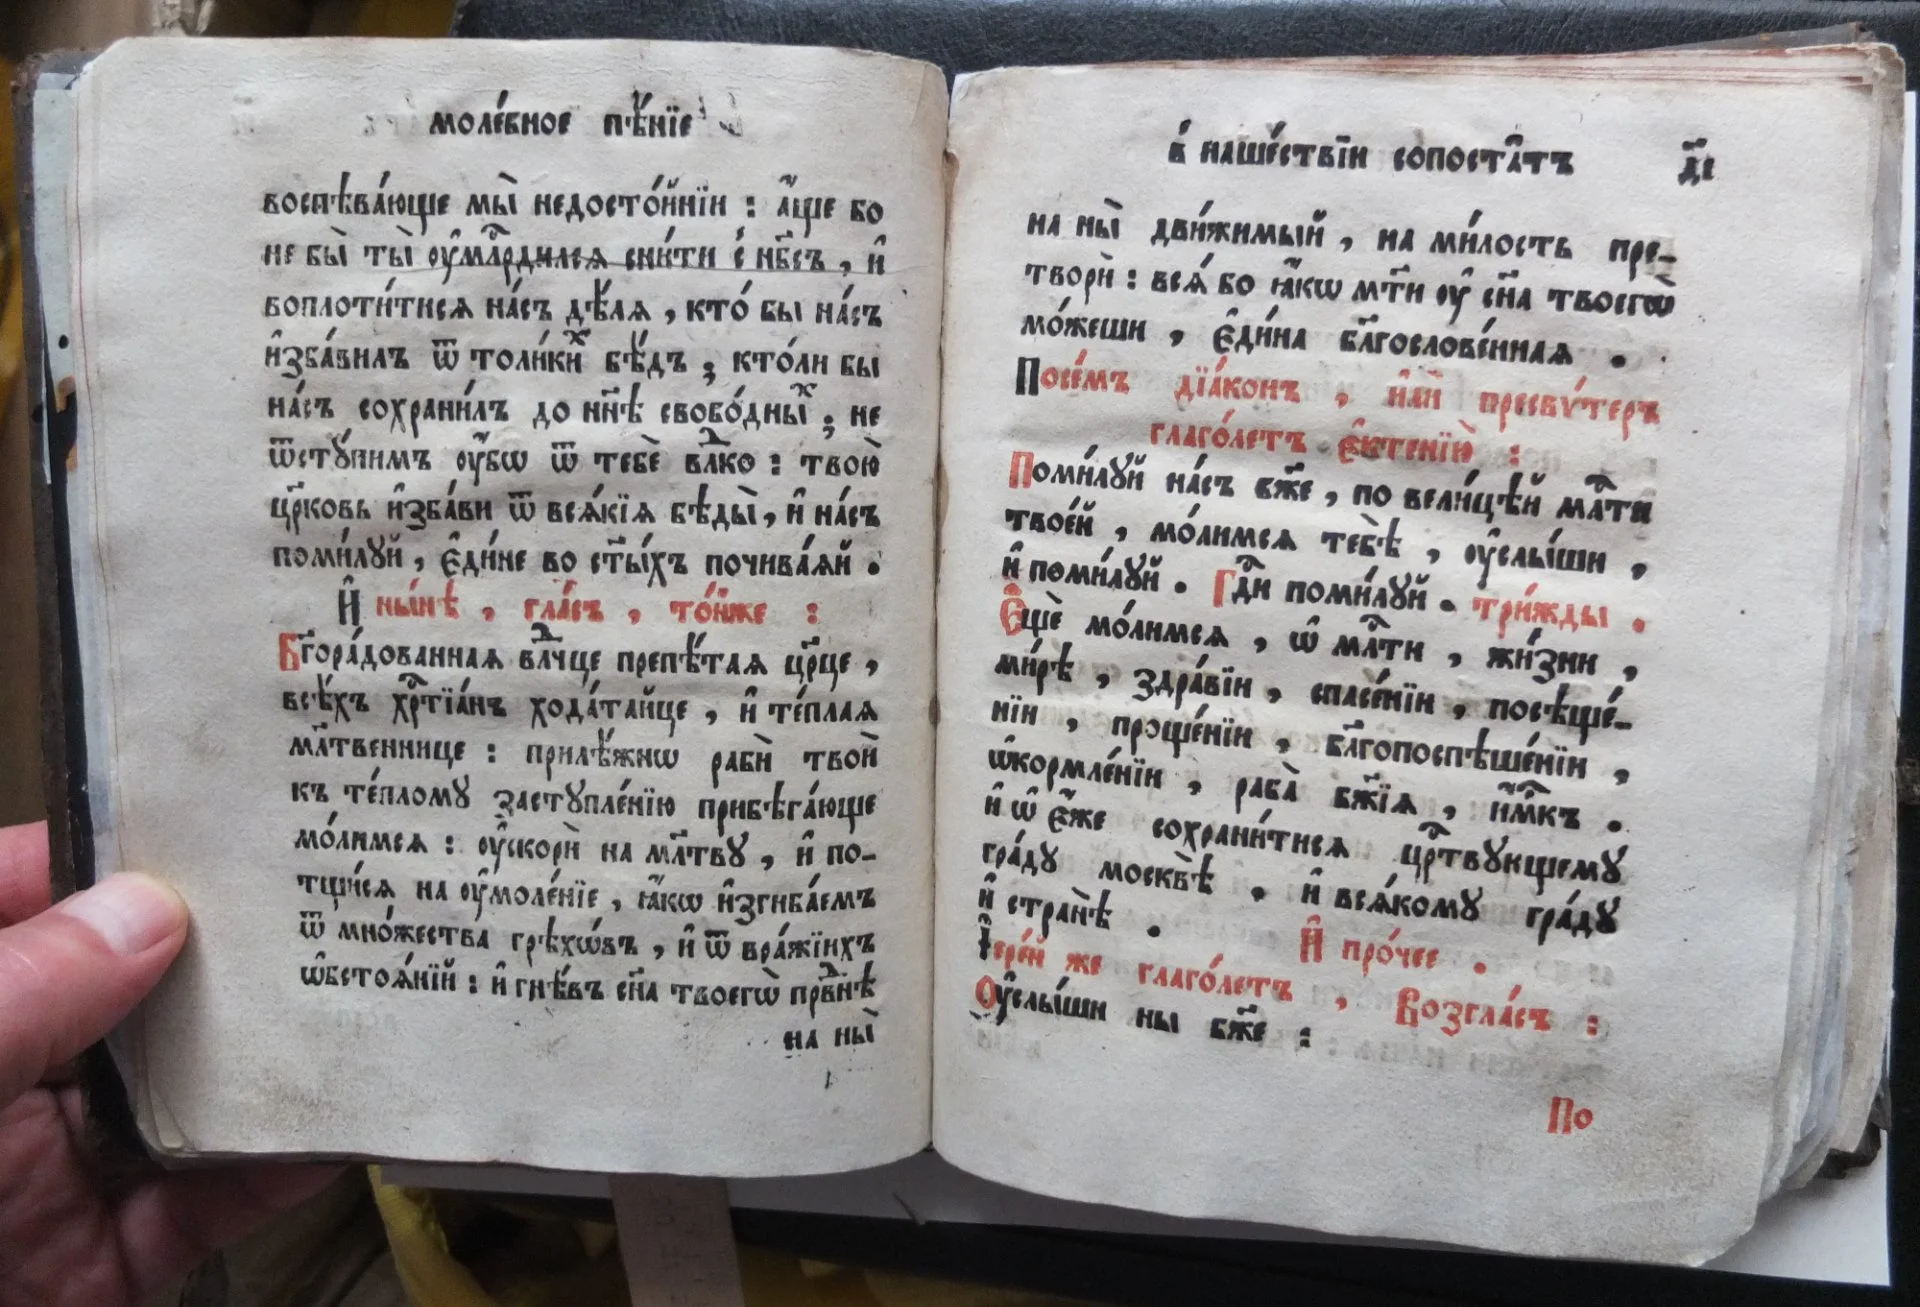 моле́бное пѣ́нїе
воспѣва́юще мы̀ недосто́йнїи : а҆́ще бо
не бы̀ ты̀ ᲂу҆млⷭ҇рдился сни́ти с̾ нб҃съ , и҆
воплоти́тися на́съ дѣ́ля , кто́ бы на́съ
и҆зба́вилъ ѿ толи́киⷯ бѣ́дъ ; кто́ли бы
на́съ сохрани́лъ до нн҃ѣ свобо́дныⷯ ; не
ѿстꙋ́пимъ ᲂу҆́бѡ ѿ тебѐ влⷣко : твою̀
цр҃ковь и҆зба́ви ѿ вся́кїя бѣды̀ , и҆ на́съ
поми́лꙋй , є҆ди́не во ст҃ы́хъ почива́яй .
И҆ ны́нѣ , гла́съ , то́йже :
Бг҃ора́дованная влⷣчце препѣ́тая цр҃це ,
всѣ́хъ хрⷭ҇тїа́нъ хода́тайце , и҆ те́плая
мл҃твеннице : прилѣ́жнѡ рабѝ твоѝ
къ те́пломꙋ застꙋпле́нїю прибѣга́юще
мо́лимся : ᲂу҆скорѝ на мл҃твꙋ , и҆ по-
тщи́ся на ᲂу҆моле́нїе , ꙗ҆́кѡ и҆згиба́емъ
ѿ мно́жества грѣхѡ́въ , и҆ ѿ вра́жїихъ
ѡ҆бстоя́нїй : и҆ гнѣ́въ сн҃а твоегѡ̀ прⷡ҇нѣ
на ны̀
в̾ наше́ствїи сопоста́тъ
д҃і
на ны̀ дви́жимый , на ми́лость пре-
творѝ : вся́ бо ꙗ҆́кѡ мт҃и ᲂу҆ сн҃а твоегѡ̀
мо́жеши , є҆ди́на бл҃гослове́нная .
Посе́мъ дїа́конъ , и҆лѝ пресвѵ́теръ
глаго́летъ є҆ктенїю̀ :
Поми́лꙋй на́съ бж҃е , по вели́цѣй млⷭ҇ти
твое́й , мо́лимся тебѣ̀ , ᲂу҆слы́ши ,
и҆ поми́лꙋй . Гдⷭ҇и поми́лꙋй . три́жды .
Є҆щѐ мо́лимся , ѡ҆ млⷭ҇ти , жи́зни ,
ми́рѣ , здра́вїи , спасе́нїи , посѣще́-
нїи , проще́нїи , бл҃гопоспѣше́нїи ,
ѡ҆кормле́нїи , раба̀ бж҃їя , и҆́мⷬ҇къ .
и҆ ѡ҆ є҆́же сохрани́тися црⷭ҇твꙋющемꙋ
гра́дꙋ москвѣ̀ , и҆ вся́комꙋ гра́дꙋ
и҆ странѣ̀ . И҆ про́чее .
І҆ере́й же глаго́летъ , Возгла́съ :
Оу҆слы́ши ны бж҃е :
По